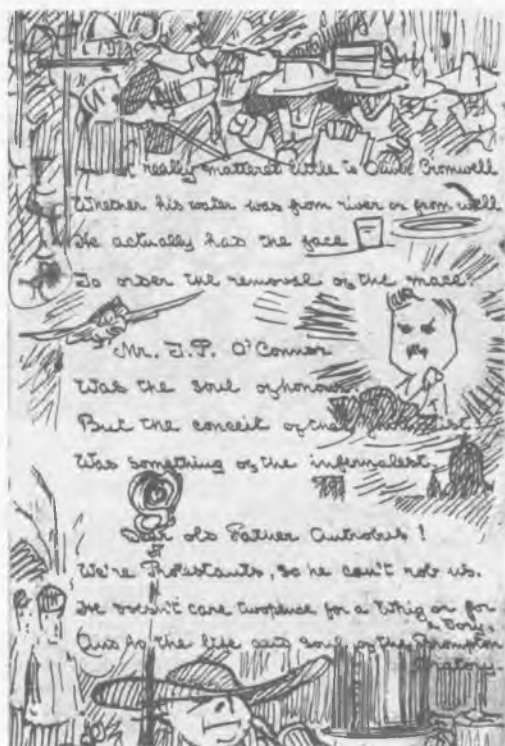 It really mattered little to Oliver Cromwell
Whether his water was from river or from well
He actually has the face
To order the removal of the mace.
Mr. T.P. O'Connor
Was the soul of honour
But the conceit of that journalist
Was something of the infernalest.
Dear old Father Autrobus!
We're Protestants, so he can't rob us.
He doesn't care twopence for a Whig or for
a Tory.
And is the life and soul of the Brompton
Oratory.